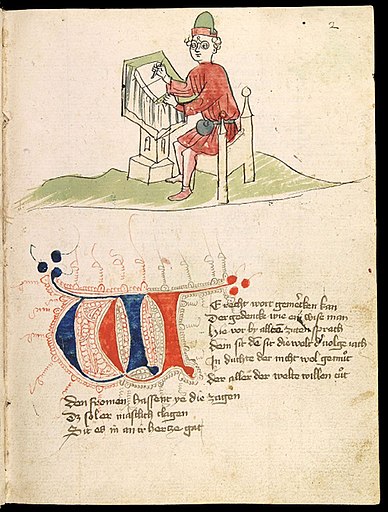 2
WEr recht wort gemerken kan
Der gedencke wie ein wise man
Hie vor by alten ziten sprach
Dem sit de sit die welt d volge iach
In duchte der nicht wol gemut
Der aller der welte willen tut
Den fromen hassent ye die zagen
Dz sol er maslich clagen
Sit es in an ir hertze gat